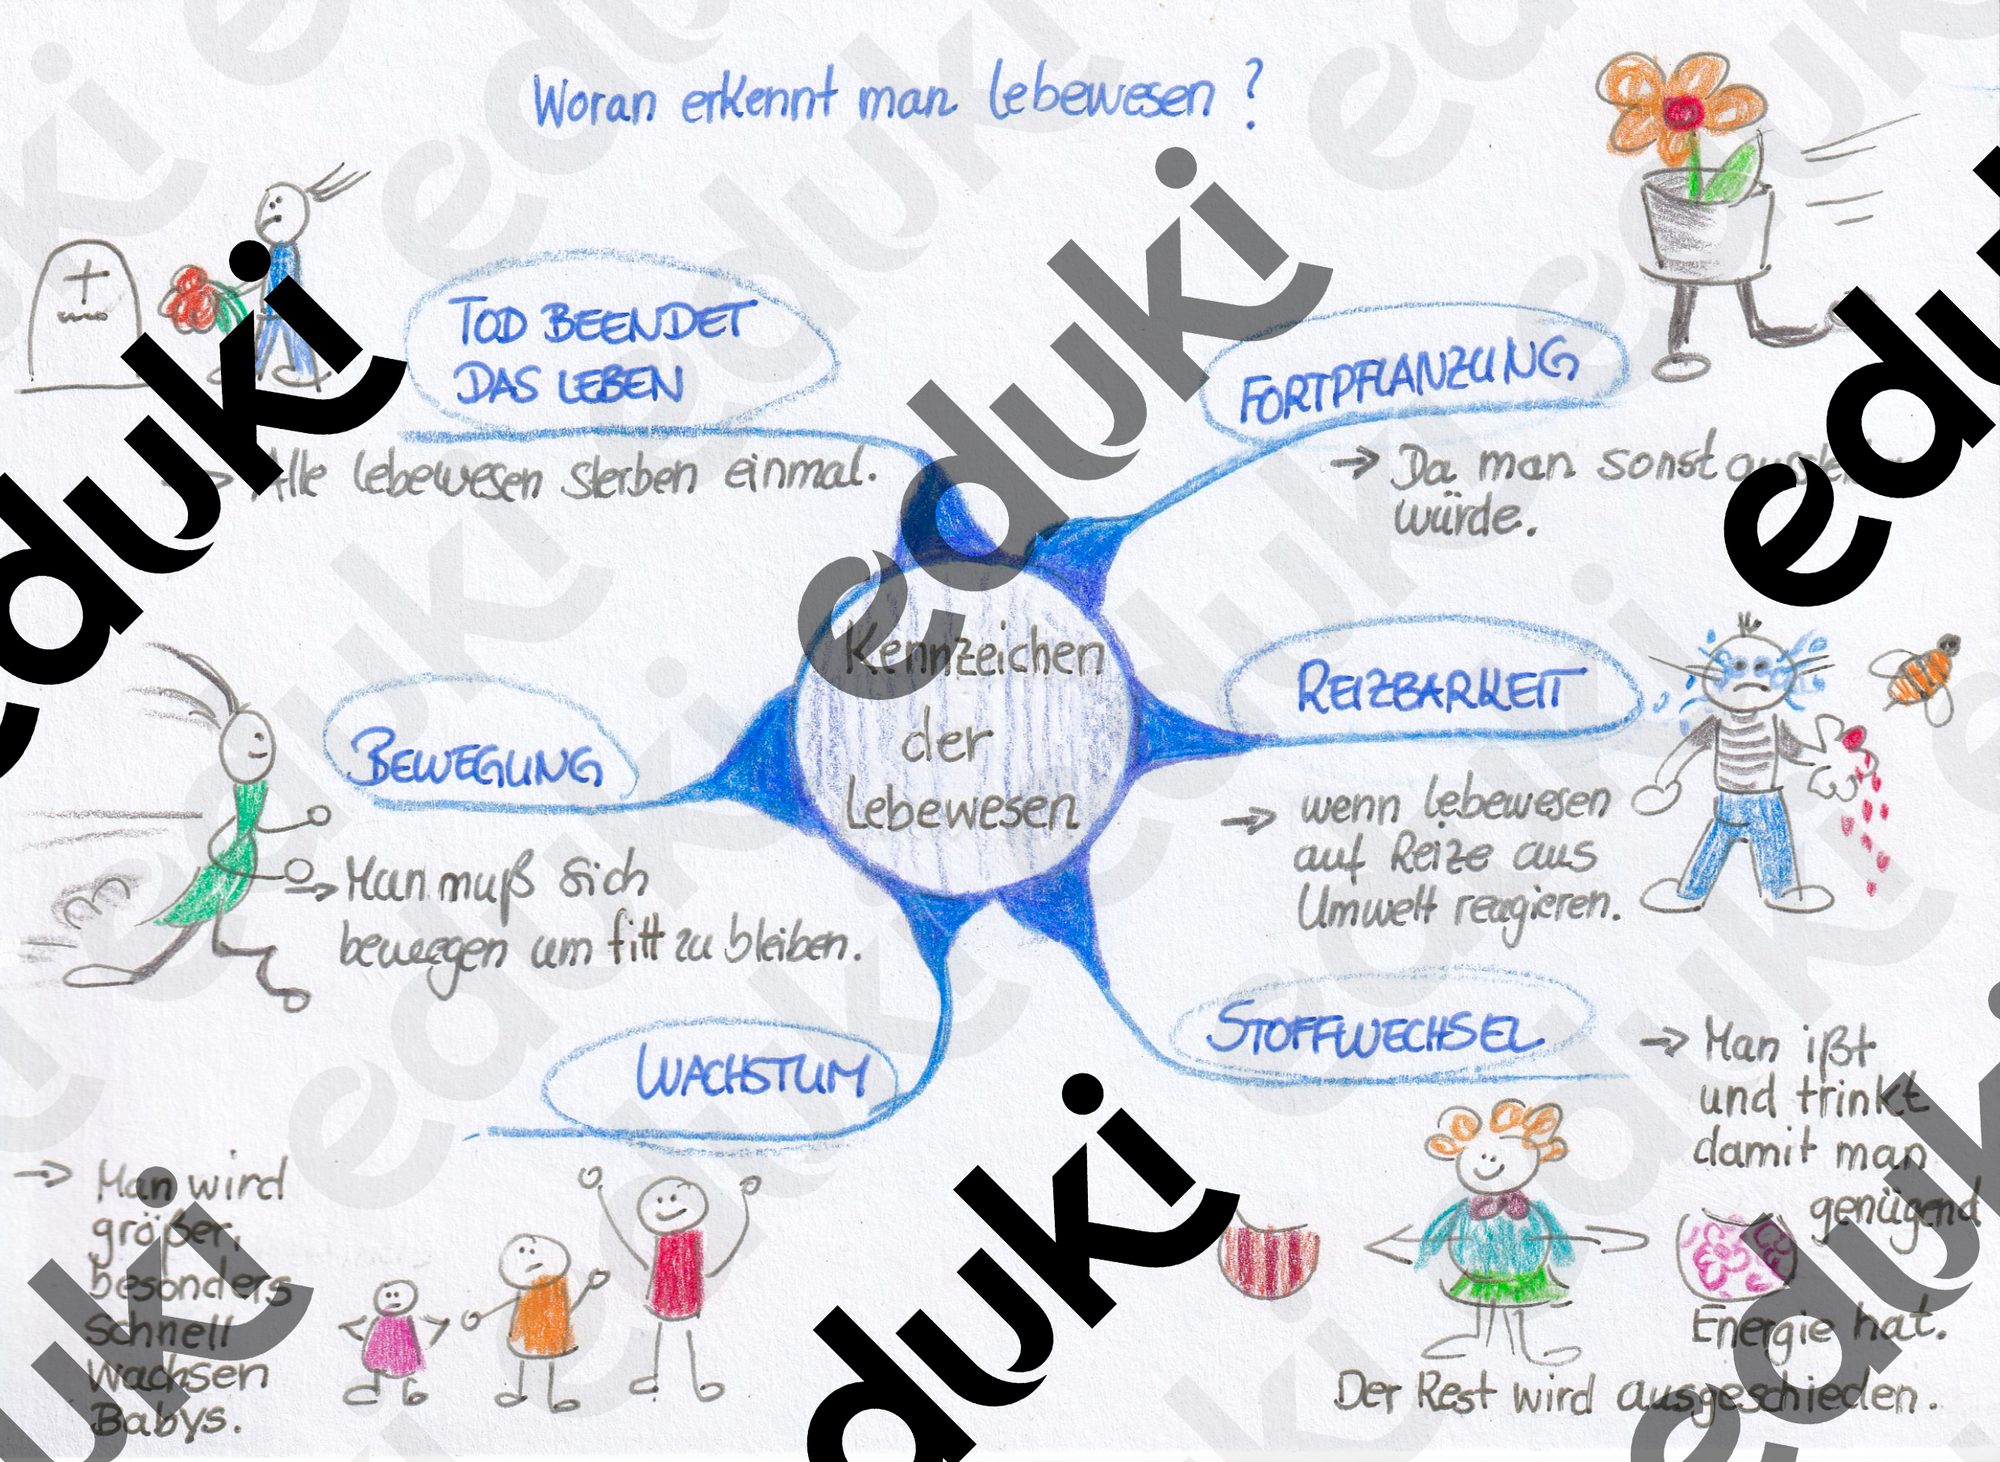 Woran erkennt man Lebewesen ?
TOD BEENDET
DAS LEBEN
→ Alle Lebewesen sterben einmal.
FORTPFLANZUNG
→ Da man sonst
würde.
Kennzeichen
der
Lebewesen
REIZBARKEIT
→ wenn Lebewesen
auf Reize aus
Umwelt reagieren.
BEWEGUNG
→ Man muß sich
bewegen um fitt zu bleiben.
STOFFWECHSEL
→ Man ißt
und trinkt
damit man
genügend
Energie hat.
Der Rest wird ausgeschieden.
WACHSTUM
→ Man wird
größer,
besonders
schnell
wachsen
Babys.
eduki
eduki
eduki
eduki
eduki